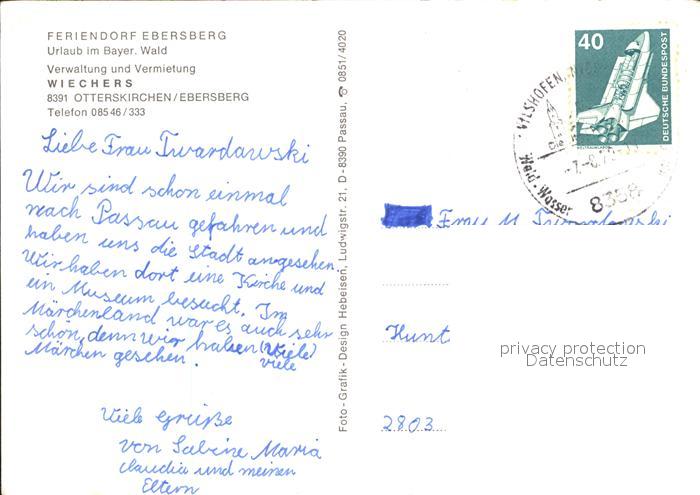 FERIENDORF EBERSBERG
Urlaub im Bayer. Wald
Verwaltung und Vermietung
WIECHERS
8391 OTTERSKIRCHEN/EBERSBERG
Telefon 08546/333
Liebe Frau Twardawski
Wir sind schon einmal
nach Passau gefahren und
haben uns die Stadt angesehen.
Wir haben dort eine Kirche und
ein Museum besucht. Im
Märchenland war es auch sehr
schön, denn wir haben (viele)
viele
Märchen gesehen.
Viele Grüße
von Sabine Maria
Claudia und meinen
Eltern
Foto-Grafik-Design Hebeisen, Ludwigstr. 21, D-8390 Passau, ☎ 0851/4020
40
DEUTSCHE BUNDESPOST
VILSHOFEN
Wald-Wasser
8358
Frau M Twardawski
Hunt
2803
privacy protection
Datenschutz